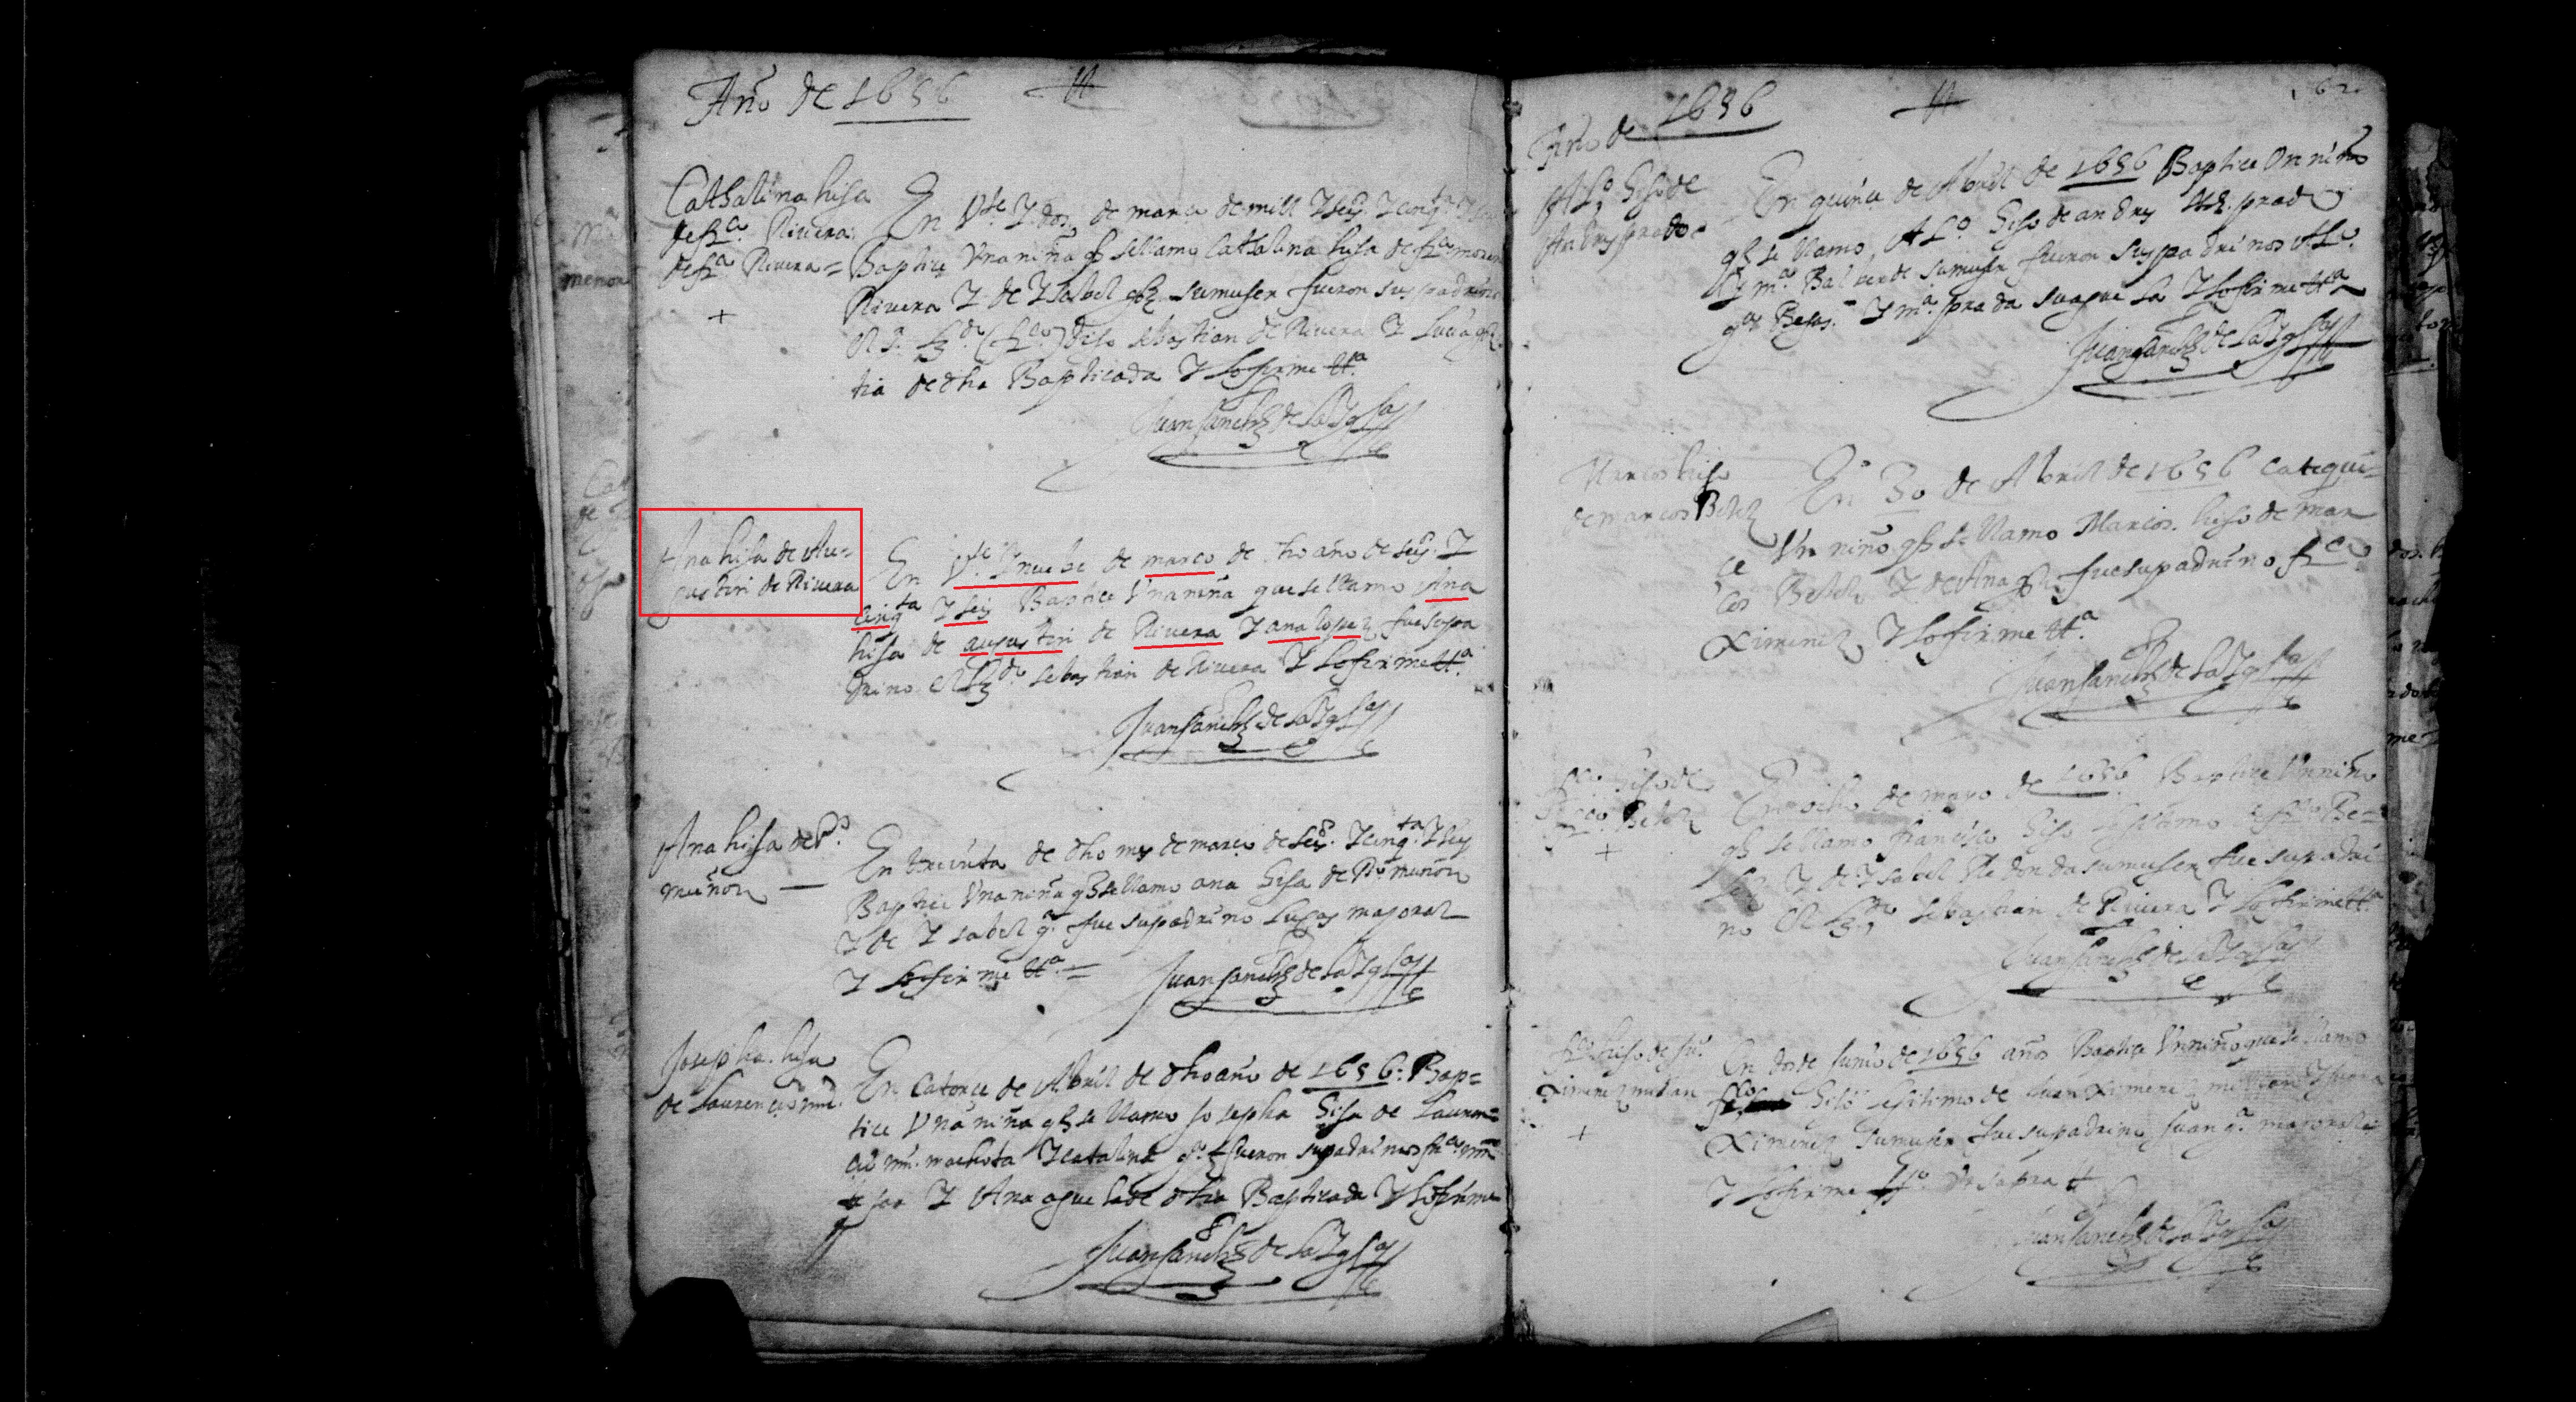 Año de 1656
Cathalina hija
de fr.co Rivera
de fr.co Rivera =
En V.te Y dos de março de mill Y sei.s Y cinq.ta Y
Baptice Vna niña q se llamo Catalina hija de fr.co moreno
Rivera Y de Ysabel su muger fueron sus padrinos
el S.r L.do (fr.co) digo sebastian de Rivera Y Lucia
tia de dha Bapticada Y lo firme tt.a
Juan Sanchez de la Ygl.a
Ana hija de Au=
gustin de Rivera
En V.te Y nuebe de março de dho año de sei.s Y
cinq.ta Y seis Baptice Vna niña que se llamo Ana
hija de augustin de Rivera Y ana lopez fue su pa
drino el L.do sebastian de Rivera Y lo firme tt.a
Juan Sanchez de la Ygl.a
Ana hija de P.o
muñoz
En treinta de dho mes de março de sei.s Y cinq.ta Y seis
Baptice Vna niña q se llamo ana hija de P.o muñoz
Y de Ysabel g.a fue su padrino Lucas majoral
Y lo firme tt.a =
Juan Sanchez de la Ygl.a
Josepha hija
de Laurencio mrn.
En Catorçe de Abril de dho año de 1656. Bap=
tice Vna niña q se llamo josepha hija de Lauren=
cio mrn. machota Y catalina g.a fueron su padrinos fr.co mrn
Y Ana aguela de dha Bapticada Y lo firme
Juan Sanchez de la Ygl.a
Año de 1656
62
Al.o hijo de
Andres prado
En quince de Abril de 1656 Baptice Vn niño
q se llamo Al.o hijo de andres prado
Y m.a Balverde su muger fueron sus padrinos Al.o
g.a Y m.a prada su aguela Y lo firme tt.a
Juan Sanchez de la Ygl.a
Marcos hijo
de marcos Belez
En 30 de Abril de 1656 Catequi=
ce Vn niño q se llamo Marcos hijo de mar
cos Belez Y de Ana fue su padrino fr.co
Ximenez Y lo firme tt.a
Juan Sanchez de la Ygl.a
fr.co hijo de
fr.co Belez
En ocho de mayo de 1656 Baptice Vn niño
q se llamo francisco hijo lejitimo de fr.co Be=
lez Y de Ysabel Redonda su muger fue su padri=
no el L.do sebastian de Rivera Y lo firme tt.a
Juan Sanchez de la Ygl.a
fr.co hijo de Ju.o
Ximenez millan
En dos de junio de 1656 años Baptice Vn niño que se llamo
fr.co hijo lejitimo de Juan Ximenez millan Y
Ximenez su muger fue su padrino Juan g.a majoral
Y lo firme Vt supra
Juan Sanchez de la Ygl.a